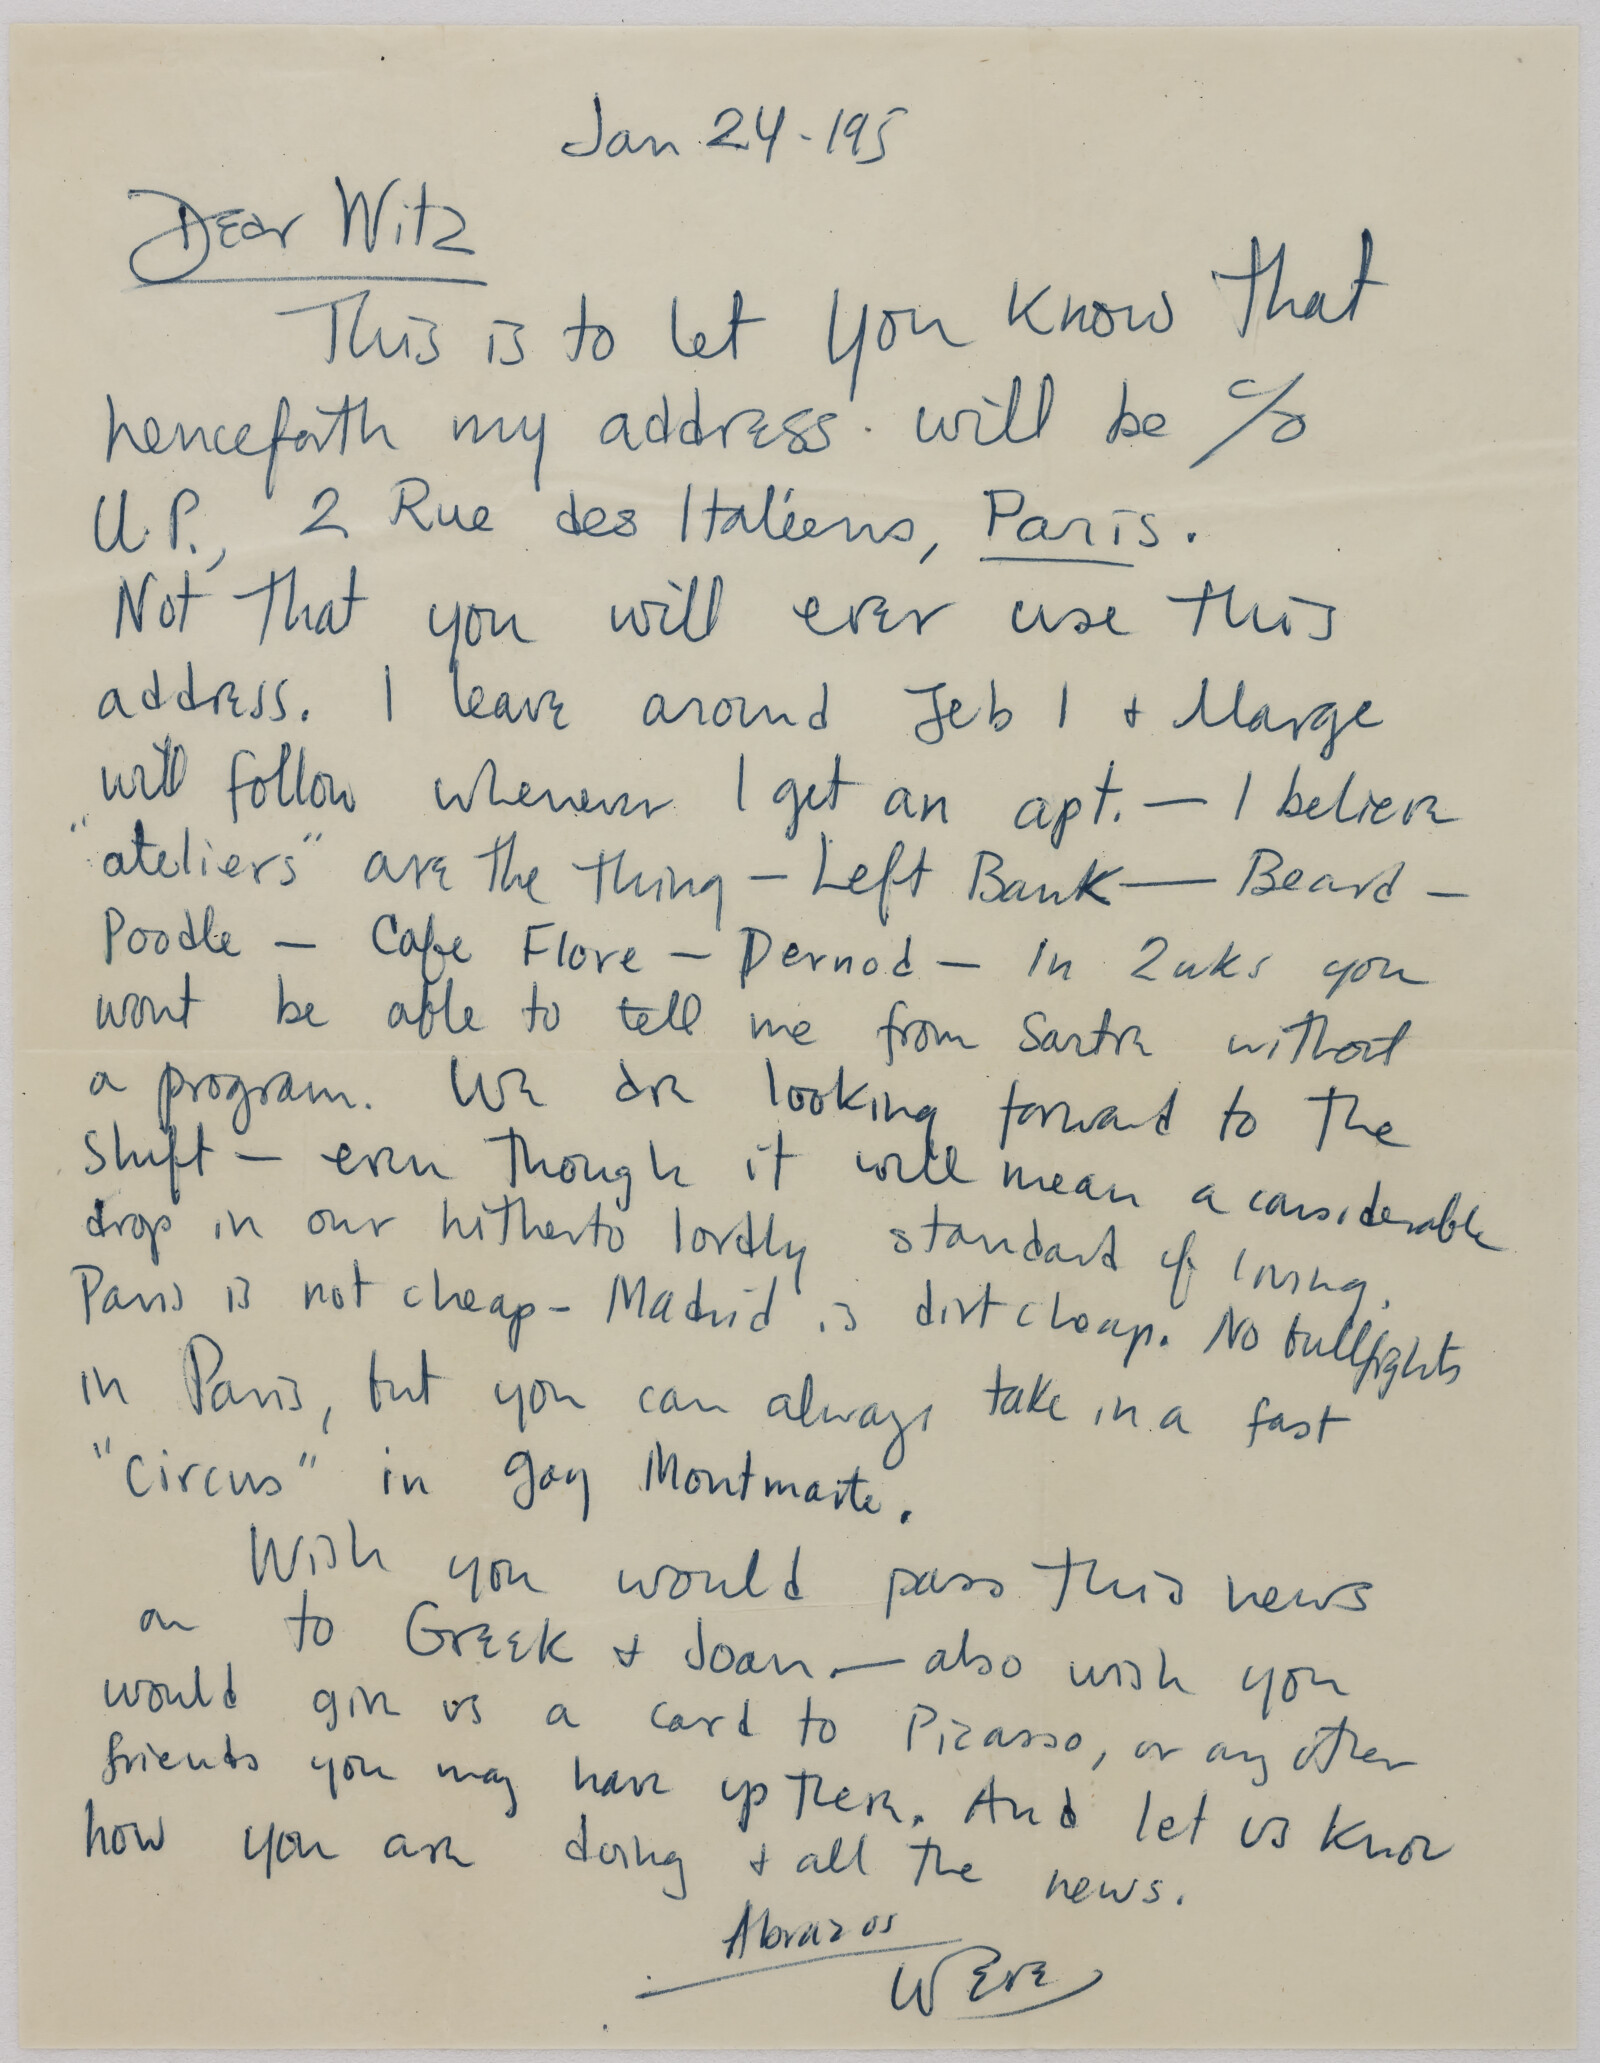 Jan 24-195
Dear Witz
This is to let you know that
henceforth my address will be c/o
U.P., 2 Rue des Italiens, Paris.
Not that you will ever use this
address. I leave around Feb 1 + Marge
will follow whenever I get an apt. — I believe
"ateliers" are the thing — Left Bank — Beard —
Poodle — Cafe Flore — Pernod — in 2 wks you
wont be able to tell me from Sartre without
a program. We are looking forward to the
shift — even though it will mean a considerable
drop in our hitherto lordly standard of living.
Paris is not cheap - Madrid is dirt cheap. No bullfights
in Paris, but you can always take in a fast
"circus" in gay Montmarte.
Wish you would pass this news
on to Greek + Joan. — also wish you
would give us a card to Picasso, or any other
friends you may have up there. And let us know
how you are doing + all the news.
Abrazos